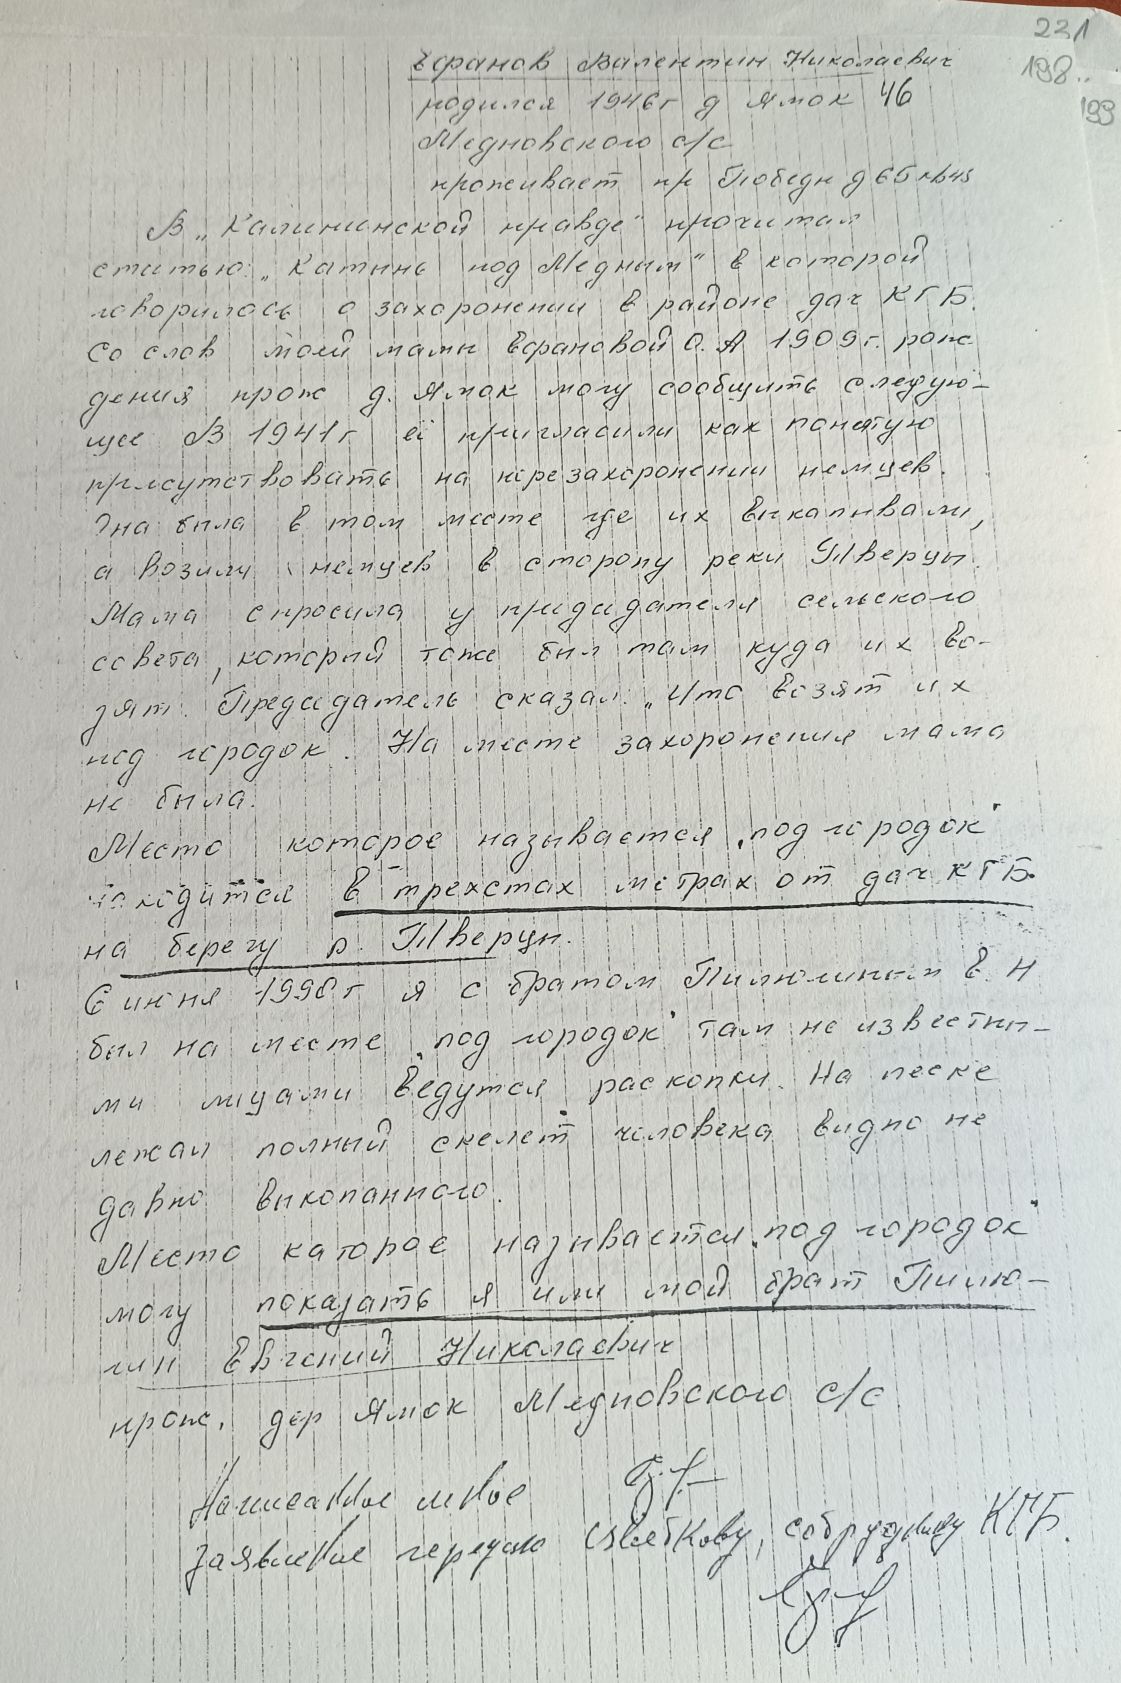 231
198
199
Ефанов Валентин Николаевич
родился 1946 г д Ямок 46
Медновского с/с
проживает пр Победы д 65 кв 43
В „Калининской правде" прочитал
статью: „Катынь под Медным" в которой
говорилось о захоронении в районе дач КГБ.
Со слов моей мамы Ефановой О. А 1909 г. рож
дения прож д. Ямок могу сообщить следую-
щее В 1941 г её пригласили как понятую
присутствовать на перезахоронении немцев.
Она была в том месте где их выкапывали,
а возили немцев в сторону реки Тверцы.
Мама спросила у придседателя сельского
совета, который тоже был там куда их во-
зят. Председатель сказал. „Что возят их
под городок. На месте захоронения мама
не была.
Место которое называется „под городок"
находится в трехстах метрах от дач КГБ.
на берегу р. Тверцы.
6 июня 1990 г я с братом Пилюгиным Е Н
был на месте „под городок" там не известны-
ми лицами ведутся раскопки. На песке
лежал полный скелет человека видно не
давно выкопанного.
Место каторое называется „под городок"
могу показать я или мой брат Пилю-
гин Евгений Николаевич
прож. дер Ямок Медновского с/с
Написанное мною
заявление передаю Цветкову, сотруднику КГБ.